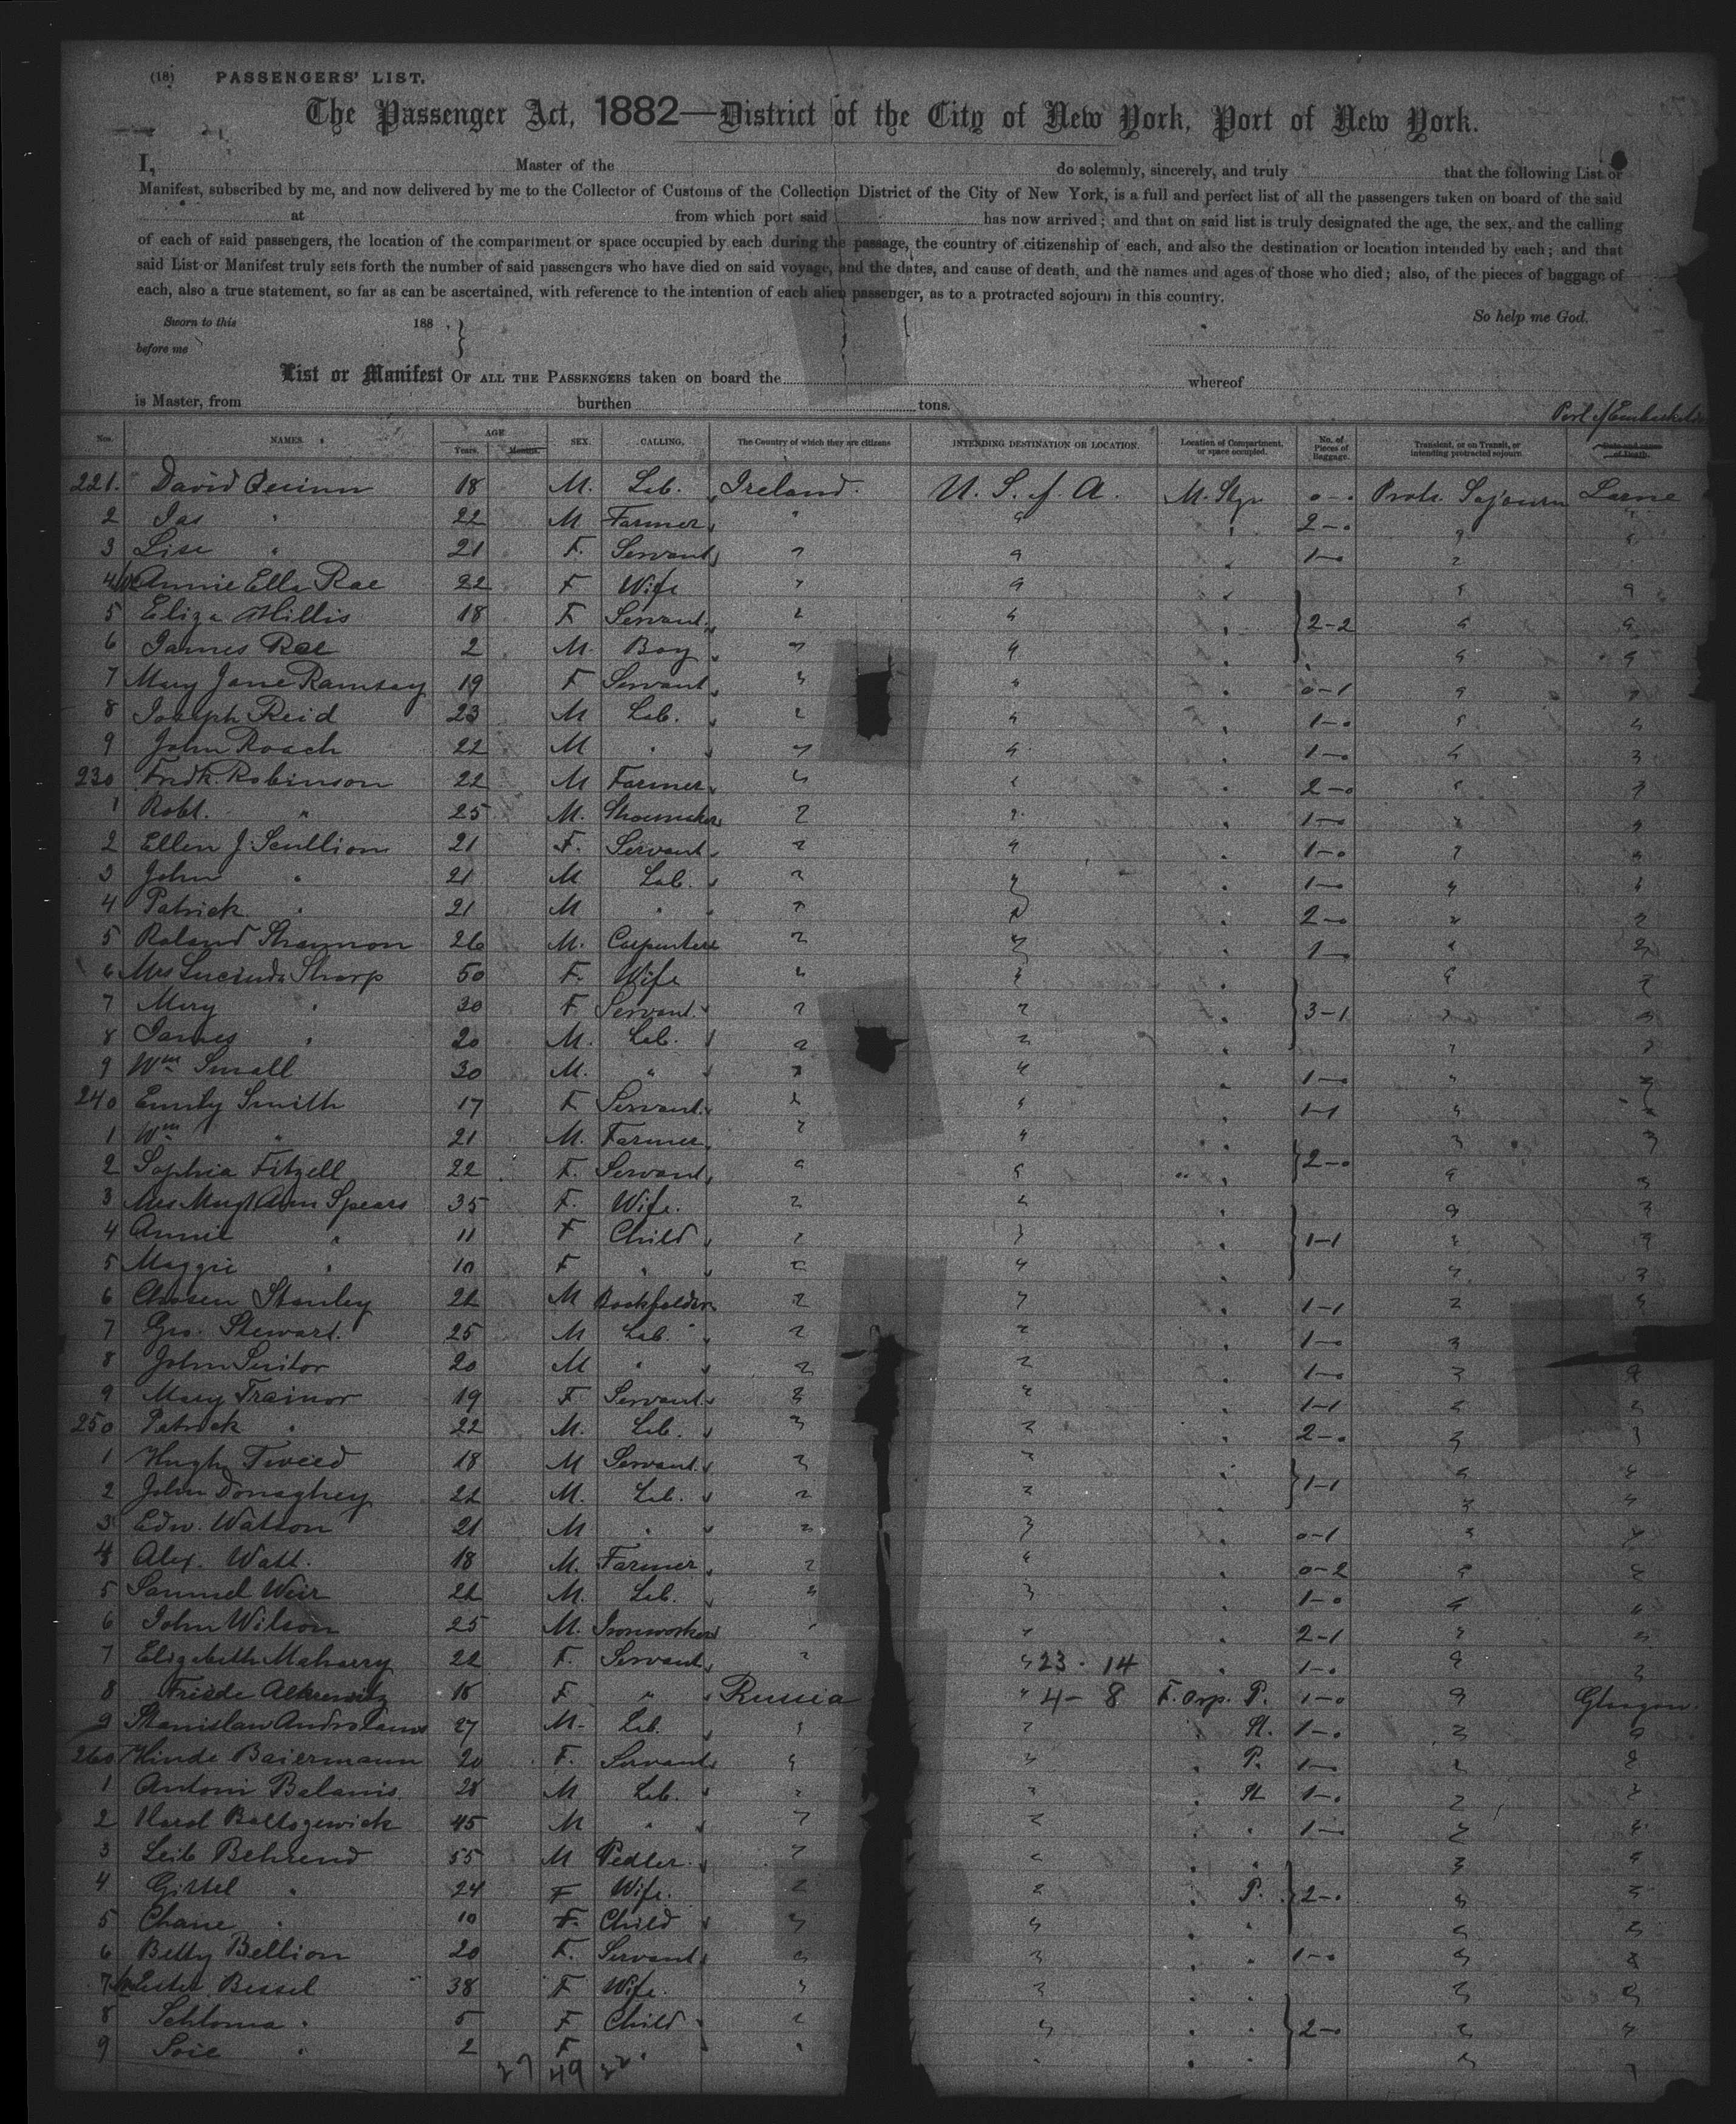 (18) PASSENGERS' LIST.
The Passenger Act, 1882—District of the City of New York, Port of New York.
I, Master of the do solemnly, sincerely, and truly that the following List or
Manifest, subscribed by me, and now delivered by me to the Collector of Customs of the Collection District of the City of New York, is a full and perfect list of all the passengers taken on board of the said
at from which port said has now arrived; and that on said list is truly designated the age, the sex, and the calling
of each of said passengers, the location of the compartment or space occupied by each during the passage, the country of citizenship of each, and also the destination or location intended by each; and that
said List or Manifest truly sets forth the number of said passengers who have died on said voyage, and the dates, and cause of death, and the names and ages of those who died; also, of the pieces of baggage of
each, also a true statement, so far as can be ascertained, with reference to the intention of each alien passenger, as to a protracted sojourn in this country.
Sworn to this 188 . } So help me God.
before me
List or Manifest OF ALL THE PASSENGERS taken on board the whereof
is Master, from burthen tons.
Port of
Nos. NAMES. AGE Years. Months. SEX. CALLING. The Country of which they are citizens INTENDING DESTINATION OR LOCATION. Location of Compartment, or space occupied. No. of Pieces of Baggage. Transient, or on Transit, or intending protracted sojourn. Date and cause of Death.
221. David Quinn 18 M. Lab. Ireland. U. S. of A. M. Stge 0-0 Protr. Sojourn Larne
2 Jas " 22 M Farmer " " " 2-0 " "
3 Lise " 21 F. Servant " " " 1-0 "
4 Annie Ella Rae 22 F Wife " " " " "
5 Eliza Millis 18 F Servant " " " 2-2 " "
6 James Rae 2 M. Boy " " " " "
7 Mary Jane Ramsay 19 F Servant " " " 0-1 " "
8 Joseph Reid 23 M Lab. " " " 1-0 " "
9 John Roach 22 M " " " " 1-0 " "
230 Fredk. Robinson 22 M Farmer " " " 2-0 " "
1 Robt. " 25 M. Shoemaker " " " 1-0 " "
2 Ellen J. Scullion 21 F. Servant " " " 1-0 " "
3 John " 21 M Lab. " " " 1-0 " "
4 Patrick " 21 M " " " " 2-0 " "
5 Roland Shannon 26 M. Carpenter " " " 1-0 " "
6 Mrs Lucinda Sharp 50 F. Wife " " " " "
7 Mary " 30 F Servant " " " 3-1 " "
8 James " 20 M. Lab. " " " " "
9 Wm Small 30 M. " " " " 1-0 " "
240 Emily Smith 17 F Servant " " " 1-1 " "
1 Wm " 21 M. Farmer " " " " "
2 Sophia Fitzell 22 F. Servant " " " 2-0 " "
3 Mrs Mary Ann Spears 35 F. Wife. " " " " "
4 Annie " 11 F Child " " " 1-1 " "
5 Maggie " 10 F " " " " " "
6 Stanley 22 M " " " 1-1 " "
7 Geo. Stewart. 25 M Lab. " " " 1-0 " "
8 John 20 M " " " " 1-0 " "
9 Mary Trainor 19 F Servant " " " 1-1 " "
250 Patrick " 22 M. Lab. " " " 2-0 " "
1 Hugh Tweed 18 M Servant " " " " "
2 John Donaghey 22 M. Lab. " " " 1-1 " "
3 Edw. Watson 21 M " " " " 0-1 " "
4 Alex. Watt. 18 M. Farmer " " " 0-2 " "
5 Samuel Weir 22 M. Lab. " " " 1-0 " "
6 John Wilson 25 M. Ironworker " " " 2-1 " "
7 Elizabeth 22 F. Servant " " 23 - 14 " 1-0 " "
8 Friede F " Russia " 4 - 8 F. P. 1-0 " Glasgow.
9 Stanislaw 27 M. Lab. " " " St. 1-0 " "
260 Hinde Baiermann 20 F. Servant " " " P. 1-0 " "
1 Antoni Balanis 28 M Lab. " " " St 1-0 " "
2 Karol 45 M " " " " " 1-0 " "
3 Leib Behrend 55 M Pedler " " " " " "
4 Gittel " 24 F Wife. " " " P. 2-0 " "
5 Chane " 10 F. Child " " " " "
6 Betty Bellion 20 F. Servant " " 1-0 " "
7 Ester Bessel 38 F Wife. " " " "
8 Schloma " 5 F Child " " " " 2-0 " "
9 " 2 F " " " " " " "
27 49 22